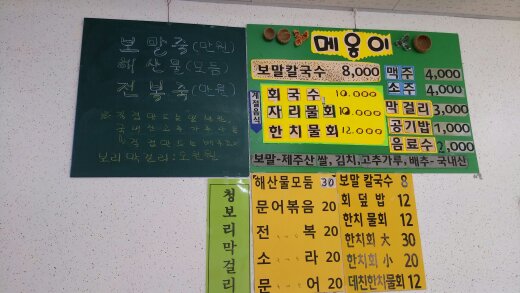 보말죽(만원)
해산물(모듬)
전복죽(만원)
보리막걸리:오천원
메웅이
보말칼국수 8,000
계절음식
회국수 10.000
자리물회 10.000
한치물회 12.000
맥주 4,000
소주 4,000
막걸리 3,000
공기밥 1,000
음료수 2,000
보말-제주산 쌀,김치,고추가루,배추-국내산
청보리막걸리
해산물모둠 30
문어볶음 20
전복 20
소라 20
문어 20
보말칼국수 8
회덮밥 12
한치물회 12
한치회 大 30
한치회 小 20
데친한치물회 12